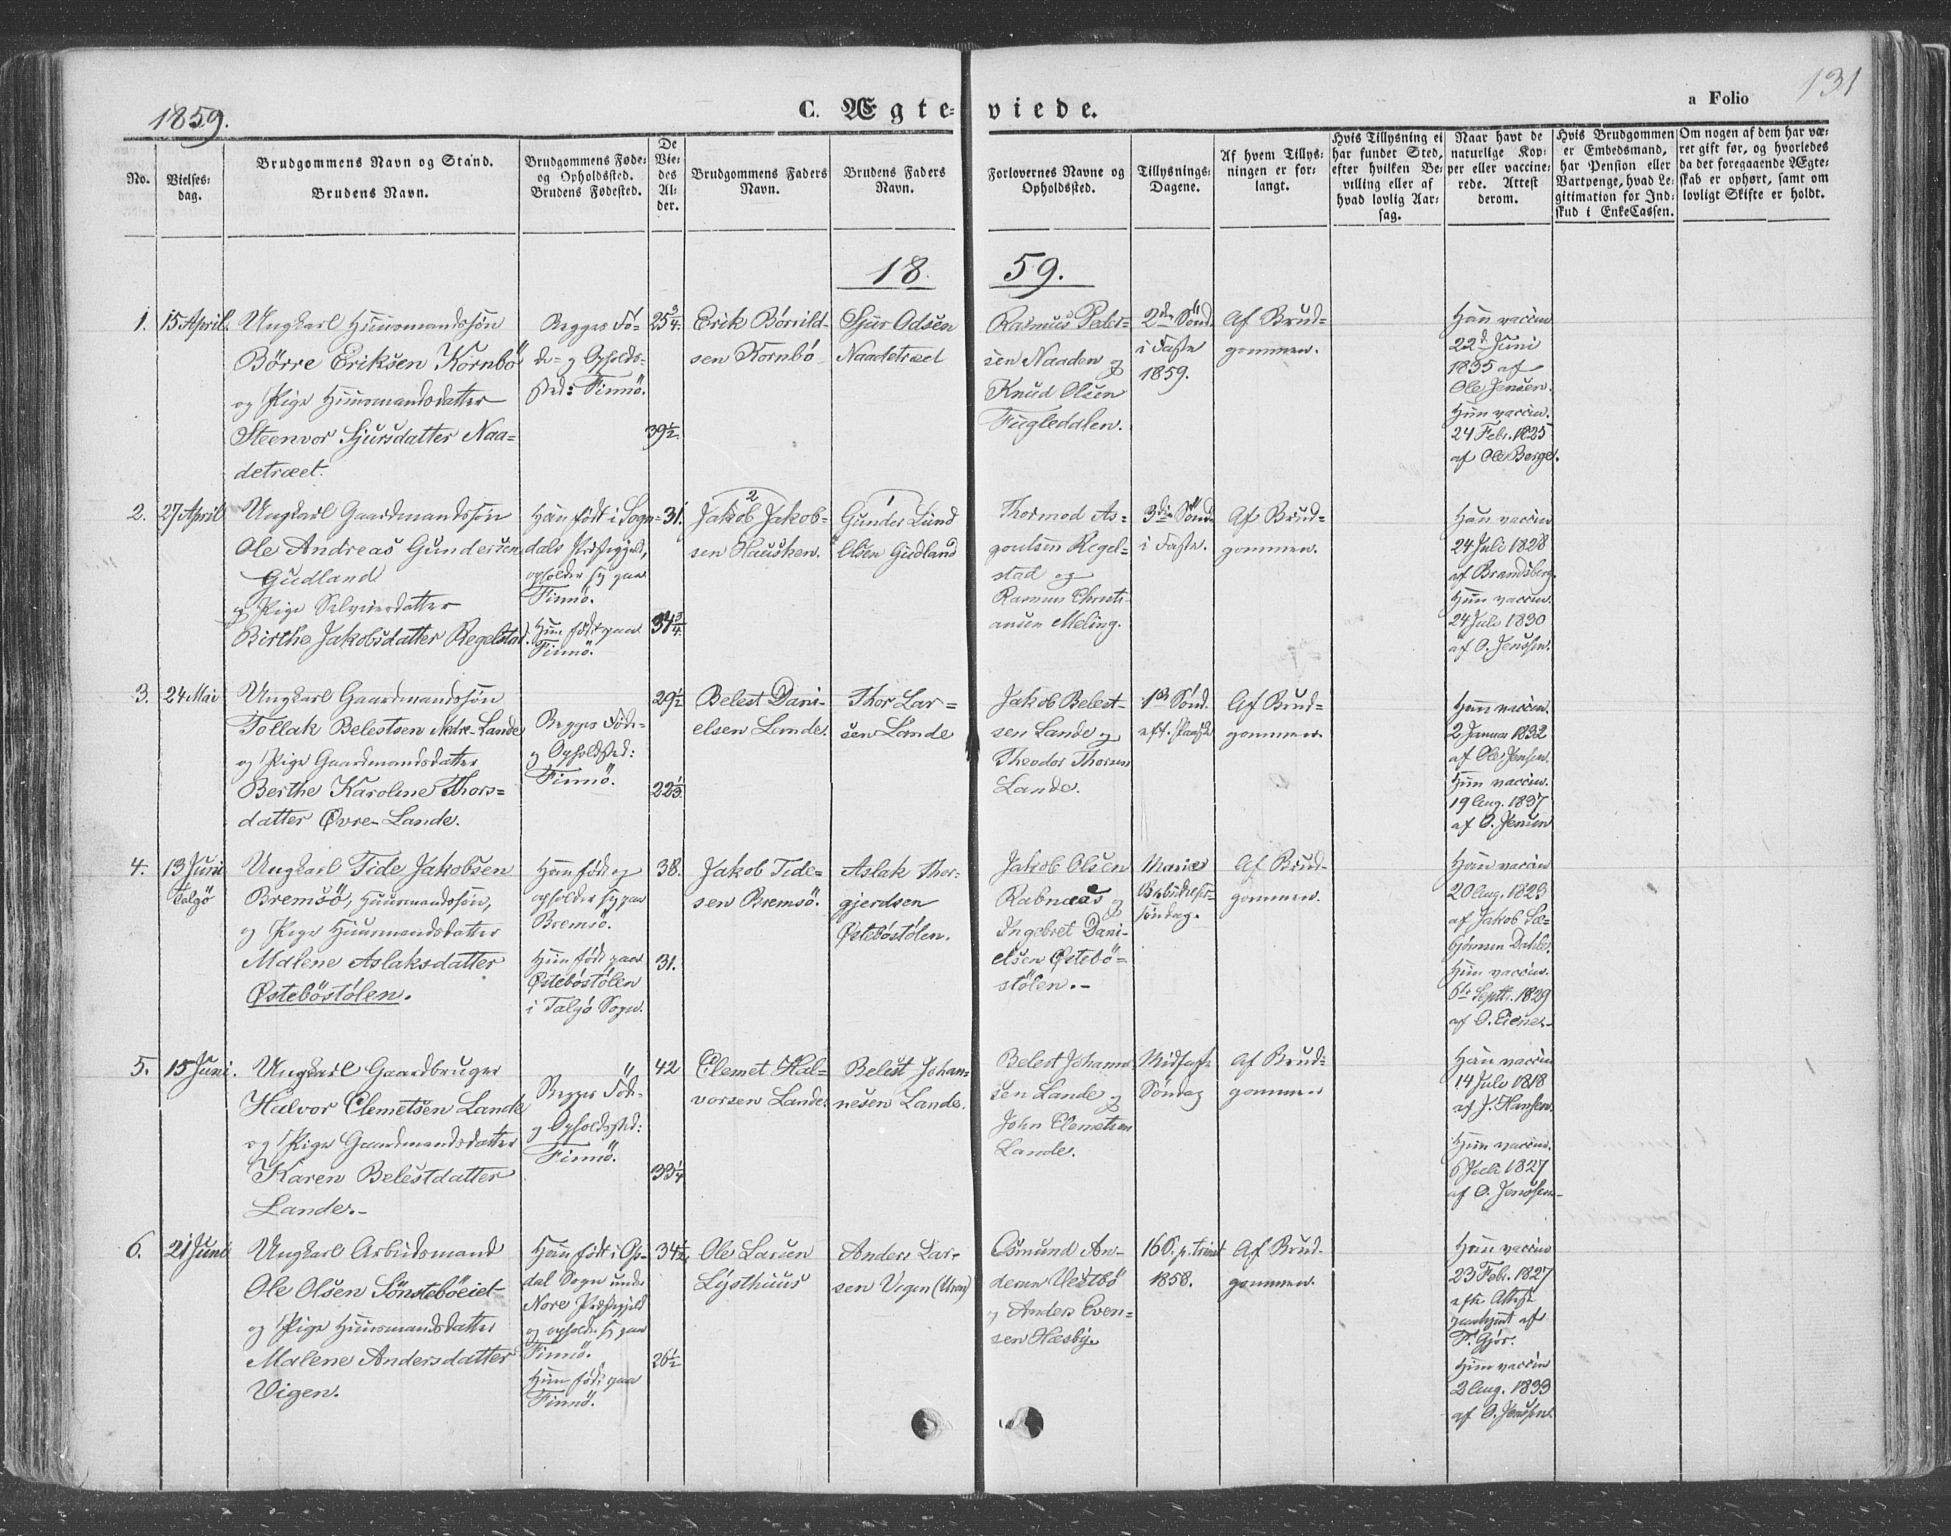 1859.
C. Ægteviede.
a Folio 131
No.
Vielsesdag.
Brudgommens Navn og Stand.
Brudens Navn.
Brudgommens Føde- og Opholdssted.
Brudens Fødested.
De Viedes Alder.
Brudgommens Faders Navn.
Brudens Faders Navn.
Forlovernes Navne og Opholdssted.
Tillysnings-Dagene.
Af hvem Tillysningen er forlangt.
Hvis Tillysning ei har fundet Sted, efter hvilken Bevilling eller af hvad lovlig Aarsag.
Naar havt de naturlige Kopper eller vaccinerede. Attest derom.
Hvis Brudgommen er Embedsmand, har Pension eller Vartpenge, hvad Legitimation for Indskud i EnkeCassen.
Om nogen af dem har været gift før, og hvorledes da det foregaaende Ægteskab er ophørt, samt om lovligt Skifte er holdt.
18 59.
1.
15 April.
Ungkarl Huusmandssøn
Börre Eriksen Kornbö
og Pige Huusmandsdatter
Steenvor Sjursdatter Naa=
detræet.
Begges Fö=
de= og Opholds=
sted: Finnö.
25 3/4.
39 1/2.
Erik Börrild=
sen Kornbö
Sjur Odsen
Naadetræet
Rasmus Peder=
sen Naaden og
Knud Olsen
Fugleddlen.
2den Sönd.
i Faste
1859.
Af Brud=
gommen.
Han vaccin
22d Juni
1835 af
Ole Jensen.
Hun vaccin.
24 Febr. 1825
af Ole Berge.
2.
27 April
Ungkarl Gaardmandssön
Ole Andreas Gundersen
Gudland
og Pige Selveierdatter
Birthe Jakobsdatter Regelstad.
Han född i Sogn=
dals Præstegjeld,
opholder sig paa
Finnö.
Hun född paa
Finnö.
31.
34 3/4
2
Jakob Jakob=
sen Hausken.
1
Gunder Lund
Olsen Gudland
Thormod As=
goutsen Regel=
stad og
Rasmus Christi=
ansen Meling.
3die Sönd.
i Faste.
Af Brud=
gommen.
Han vaccin
24 Juli 1828
af Brandsberg.
Hun vaccin.
24 Juli 1830
af O. Jenssen.
3.
24 Mai
Ungkarl Gaardmandssön
Tollak Belestsen Nedre-Lande
og Pige Gaardmandsdatter
Berthe Karoline Thors=
datter Øvre-Lande.
Begges Föde=
og Opholdssted:
Finnö.
29 1/2
22 1/3.
Belest Dani=
elsen Lande.
Thor Lar=
sen Lande
Jakob Belest=
sen Lande og
Theodor Thorsen
Lande.
1ste Sönd.
eft. Paaske
Af Brud=
gommen.
Han vaccin.
2 Januar 1832
af Ole Jensen.
Hun vaccin.
19 Aug. 1837
af O. Jensen
4.
13 Juni
Talgö
Ungkarl Tide Jakobsen
Bremsö, Huusmandssön,
og Pige Huusmandsdatter
Malene Aslaksdatter
Østeböstölen.
Han född og
opholder sig paa
Bremsö.
Hun född paa
Østeböstölen
i Talgö Sogn.
38.
31.
Jakob Tide=
sen Bremsö.
Aslak Thor=
gjerdsen
Østeböstölen.
Jakob Olsen
Rabnaas og
Ingebret Dani=
elsen Østebö=
stölen.-
Mariæ
Bebudelses=
söndag.
Af Brud=
gommen.
Han vaccin
20 Aug. 1823
af Jakob
Dahle.
Hun vaccin.
6te Septbr. 1829
af O. Eiene.-
5.
15 Juni.
Ungkarl Gaardbruger
Halvor Clemetsen Lande
og Pige Gaardmandsdatter
Karen Belestdatter
Lande.-
Begges Föde=
og Opholdssted:
Finnö.
42
33 1/4
Clemet Hal=
vorsen Lande.
Belest Johan=
nesen Lande.
Belest Johanne=
sen Lande og
John Clemetsen
Lande.
Midfaste
Söndag
Af Brud=
gommen
Han vaccin
14 Juli 1818
af J. Hansen.
Hun vaccin.
6 Juli 1827
af O. Jenssen.-
6.
21 Juni
Ungkarl Arbeidsmand
Ole Olsen Sönsteböeiet
og Pige Huusmandsdatter
Malene Andersdatter
Vigen.
Han född i Op=
dal Sogn under
Nore Præstegjeld
og opholder sig paa
Finnö.
Hun född paa
Finnö.
34 1/2
26 1/2
Ole Larsen
Lysthuus
Anders Lar=
sen Vigen
Osmund An=
dersen Vestbö
og Anders Even=
sen Hæsby.
16 S. p. trinit
1858.
Af Brud=
gommen.
Han vaccin
23 Febr. 1827
efter Attest
af
Gjör.
Hun vaccin
2 Aug. 1833
af O. Jensen.